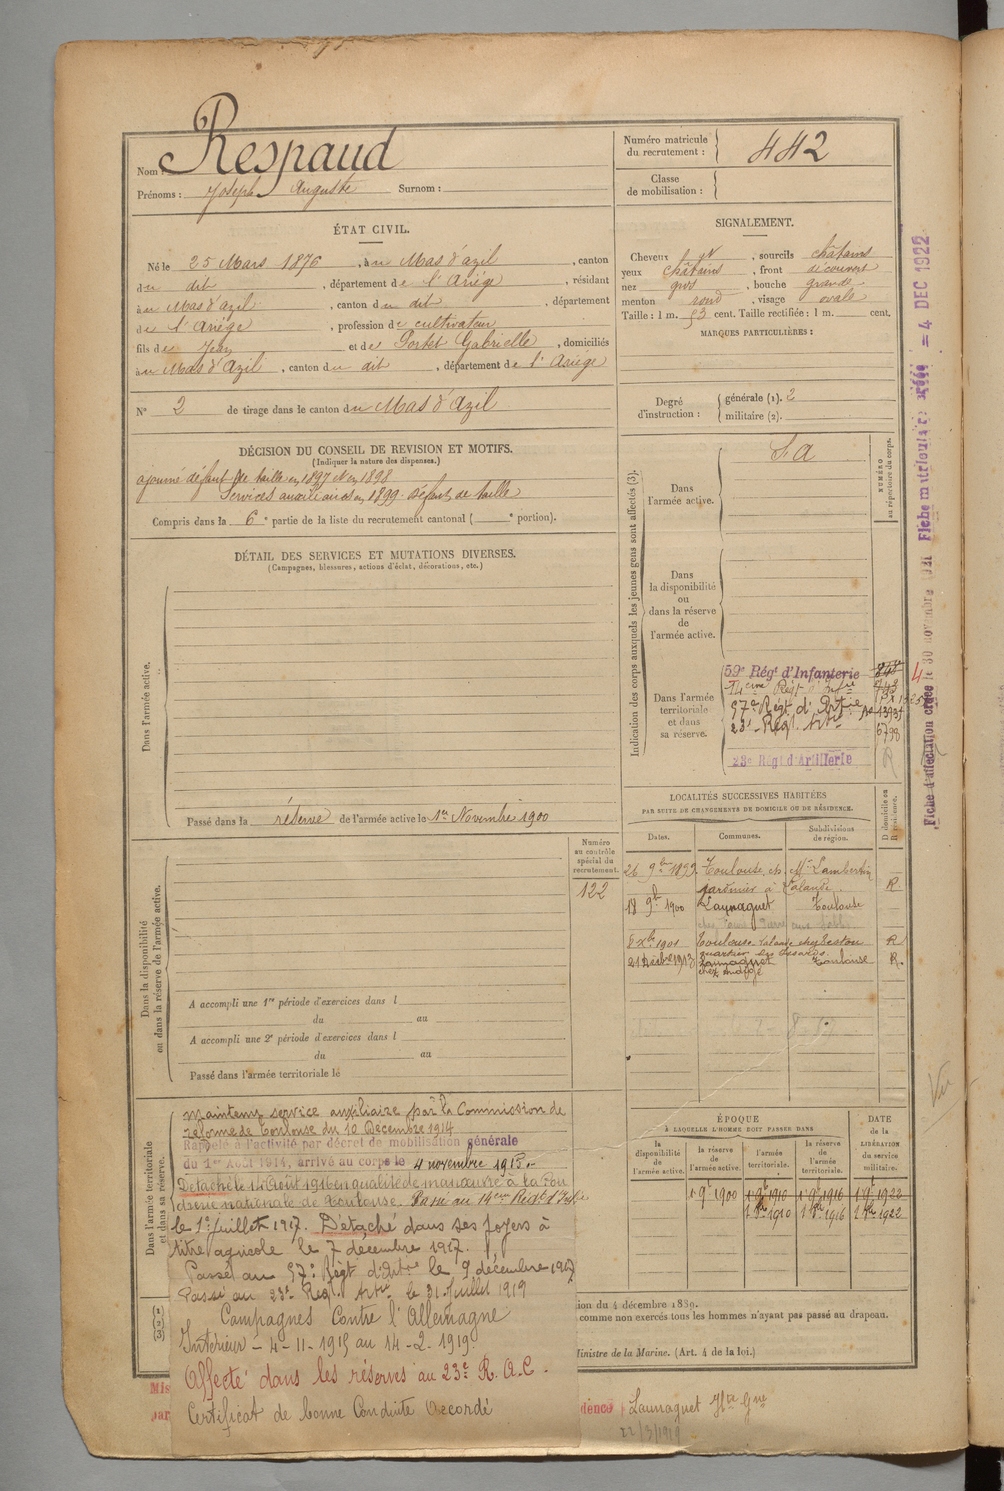 Nom : Respaud
Prénoms : Joseph Auguste Surnom :
Numéro matricule du recrutement : 442
Classe de mobilisation :
ÉTAT CIVIL.
Né le 25 Mars 1876, à u Mas d'azil, canton
du dit, département de l'Ariège, résidant
à u Mas d'azil, canton du dit, département
de l'Ariège, profession de cultivateur
fils de Jean et de Portet Gabrielle, domiciliés
à u Mas d'Azil, canton du dit, département de l'Ariège
N° 2 de tirage dans le canton du Mas d'Azil
SIGNALEMENT.
Cheveux, sourcils châtains
yeux châtains, front découvert
nez gros, bouche grande
menton rond, visage ovale
Taille : 1 m. 53 cent. Taille rectifiée : 1 m. cent.
MARQUES PARTICULIÈRES :
Degré d'instruction : générale (1). 2
militaire (2).
DÉCISION DU CONSEIL DE REVISION ET MOTIFS.
(Indiquer la nature des dispenses.)
ajourné défaut de taille en 1897 et en 1898
Services auxiliaires en 1899. défaut de taille
Compris dans la 6e partie de la liste du recrutement cantonal ( e portion).
DÉTAIL DES SERVICES ET MUTATIONS DIVERSES.
(Campagnes, blessures, actions d'éclat, décorations, etc.)
Dans l'armée active.
Passé dans la réserve de l'armée active le 1er Novembre 1900
Dans la disponibilité ou dans la réserve de l'armée active.
Numéro au contrôle spécial du recrutement.
122
A accompli une 1re période d'exercices dans l
du au
A accompli une 2e période d'exercices dans l
du au
Passé dans l'armée territoriale le
Dans l'armée territoriale et dans sa réserve.
maintenu service auxiliaire par la Commission de
réforme de Toulouse du 10 Décembre 1914
Rappelé à l'activité par décret de mobilisation générale
du 1er Août 1914, arrivé au corps le 4 novembre 1915.
Détaché le 11 Août 1916 en qualité de manœuvre à la Pou
drerie nationale de Toulouse. Passé au 14eme Regt d'Inf
le 1er juillet 1917. Détaché dans ses foyers à
titre agricole le 7 décembre 1917.
Passé au 57e Régt d'Artrie le 9 décembre 1917
Passé au 23e Regt Artie le 31 Juillet 1919
Campagnes Contre l'Allemagne
Intérieur - 4-11-1915 au 14-2-1919.
Affecté dans les réserves au 23e R.A.C.
Certificat de bonne Conduite Accordé
Indication des corps auxquels les jeunes gens sont affectés (3).
NUMÉRO au répertoire du corps.
Dans l'armée active.
S a
Dans la disponibilité ou dans la réserve de l'armée active.
Dans l'armée territoriale et dans sa réserve.
59e Régt d'Infanterie
14eme Régt d'Infie
57e Regt d'Artie
23e Regt Artie 6798
23e Régt d'Artillerie
LOCALITÉS SUCCESSIVES HABITÉES
PAR SUITE DE CHANGEMENTS DE DOMICILE OU DE RÉSIDENCE.
Dates. Communes. Subdivisions de région. D domicile ou R résidence.
26 9bre 1899. Toulouse, ch. Mr Lambertin
jardinier à Lalande. R.
18 9b 1900 Launaguet Toulouse
8 Xbre 1901 Toulouse Lalande R
21 1913 Launaguet Toulouse R.
ÉPOQUE
À LAQUELLE L'HOMME DOIT PASSER DANS
la disponibilité de l'armée active. la réserve de l'armée active. l'armée territoriale. la réserve de l'armée territoriale. DATE de la LIBÉRATION du service militaire.
1 9b 1900 1 9b 1910 1 9b 1916 1 9b 1922
1 8bre 1910 1 8bre 1916 1 8bre 1922
ion du 4 décembre 1889.
comme non exercés tous les hommes n'ayant pas passé au drapeau.
Ministre de la Marine. (Art. 4 de la loi.)
Mis
par
dence Launaguet Hte Gne
22/3/1919
Fiche d'affectation créée le 30 novembre 1921 Fiche matriculaire créée = 4 DEC 1922
Vu